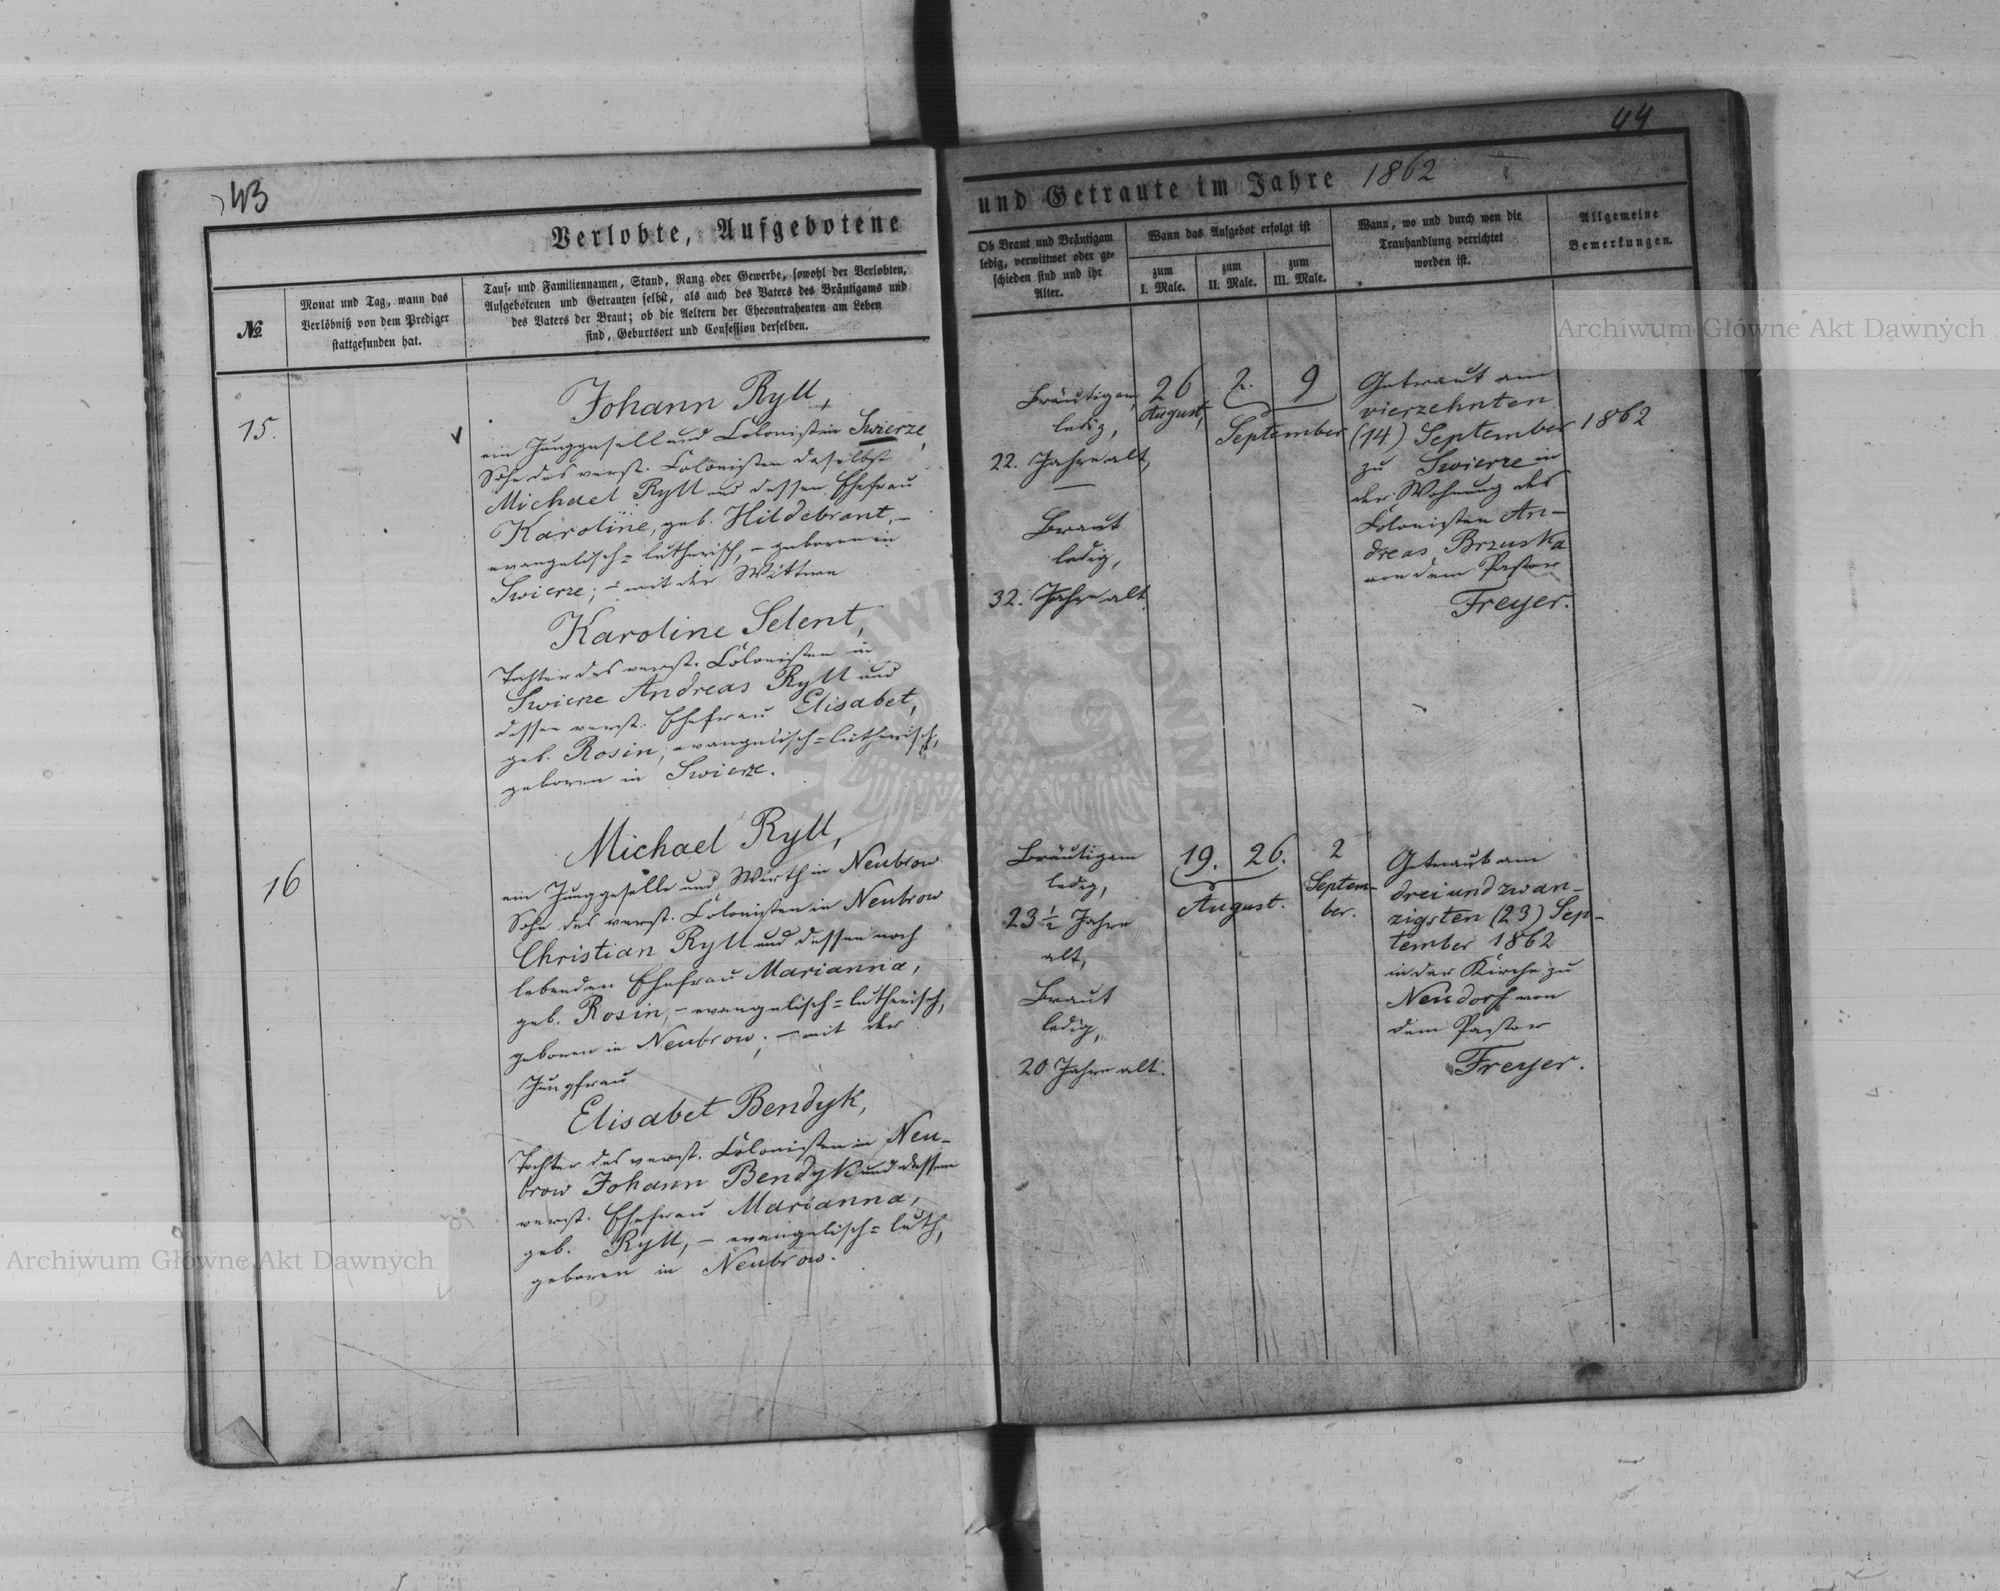 43
Verlobte, Aufgebotene
№
Monat und Tag, wann das
Verlöbniß von dem Prediger
stattgefunden hat.
Tauf- und Familiennamen, Stand, Rang oder Gewerbe, sowohl der Verlobten,
Aufgebotenen und Getrauten selbst, als auch des Vaters des Bräutigams und
des Vaters der Braut; ob die Aeltern der Ehecontrahenten am Leben
sind, Geburtsort und Confession derselben.
15.
Johann Ryll,
ein Junggesell und Colonist in Swierze,
Sohn des verst. Colonisten daselbst
Michael Ryll und dessen Ehefrau
Karoline, geb. Hildebrant, –
evangelisch=lutherisch, – geboren in
Swierze; – mit der Wittwe
Karoline Selent,
Tochter des verst. Colonisten in
Swierze Andreas Ryll und
dessen verst. Ehefrau Elisabet,
geb. Rosin, evangelisch=lutherisch,
geboren in Swierze.
16
Michael Ryll,
ein Junggeselle und Wirth in Neubrow
Sohn des verst. Colonisten in Neubrow
Christian Ryll und dessen noch
lebenden Ehefrau Marianna,
geb. Rosin, – evangelisch=lutherisch,
geboren in Neubrow; – mit der
Jungfrau
Elisabet Bendyk,
Tochter des verst. Colonisten in Neu-
brow Johann Bendyk und dessen
verst. Ehefrau Marianna,
geb. Ryll, – evangelisch=luth,
geboren in Neubrow.
44
und Getraute im Jahre 1862
Ob Braut und Bräutigam
ledig, verwittwet oder ge-
schieden sind und ihr
Alter.
Wann das Aufgebot erfolgt ist
zum
I. Male.
zum
II. Male.
zum
III. Male.
Wann, wo und durch wen die
Trauhandlung verrichtet
worden ist.
Allgemeine
Bemerkungen.
Bräutigam
ledig,
22. Jahre alt,
Braut
ledig,
32. Jahre alt
26
August,
2. 9
September
Getraut am
vierzehnten
(14) September 1862
zu Swierze in
der Wohnung des
Colonisten An-
dreas Brzuska
von dem Pastor
Freyer.
Bräutigam
ledig,
23 ½ Jahre
alt,
Braut
ledig,
20 Jahre alt.
19. 26.
August.
2
Septem-
ber.
Getraut am
drei und zwan-
zigsten (23) Sep-
tember 1862
in der Kirche zu
Neudorf von
dem Pastor
Freyer.
Archiwum Główne Akt Dawnych
Archiwum Główne Akt Dawnych